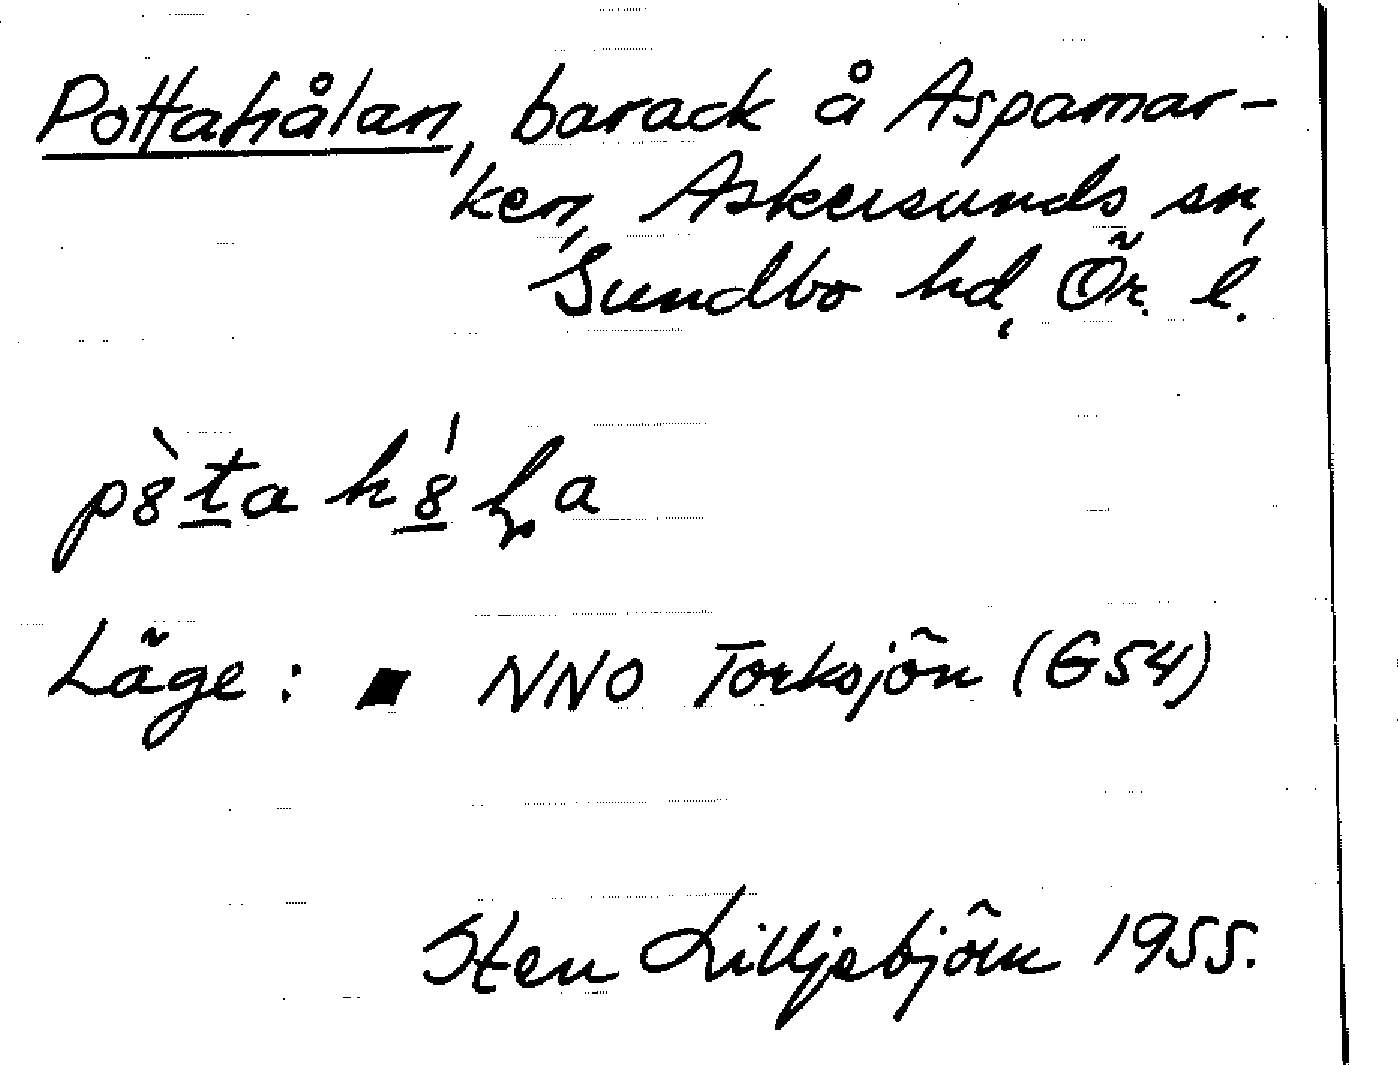 Pottahålan, barack å Aspamar-
ken, Askersunds sn,
Sundbo hd, Ör. l.
Läge: NNO Torksjön (GS4)
Sten Lilljebjörn 1955.